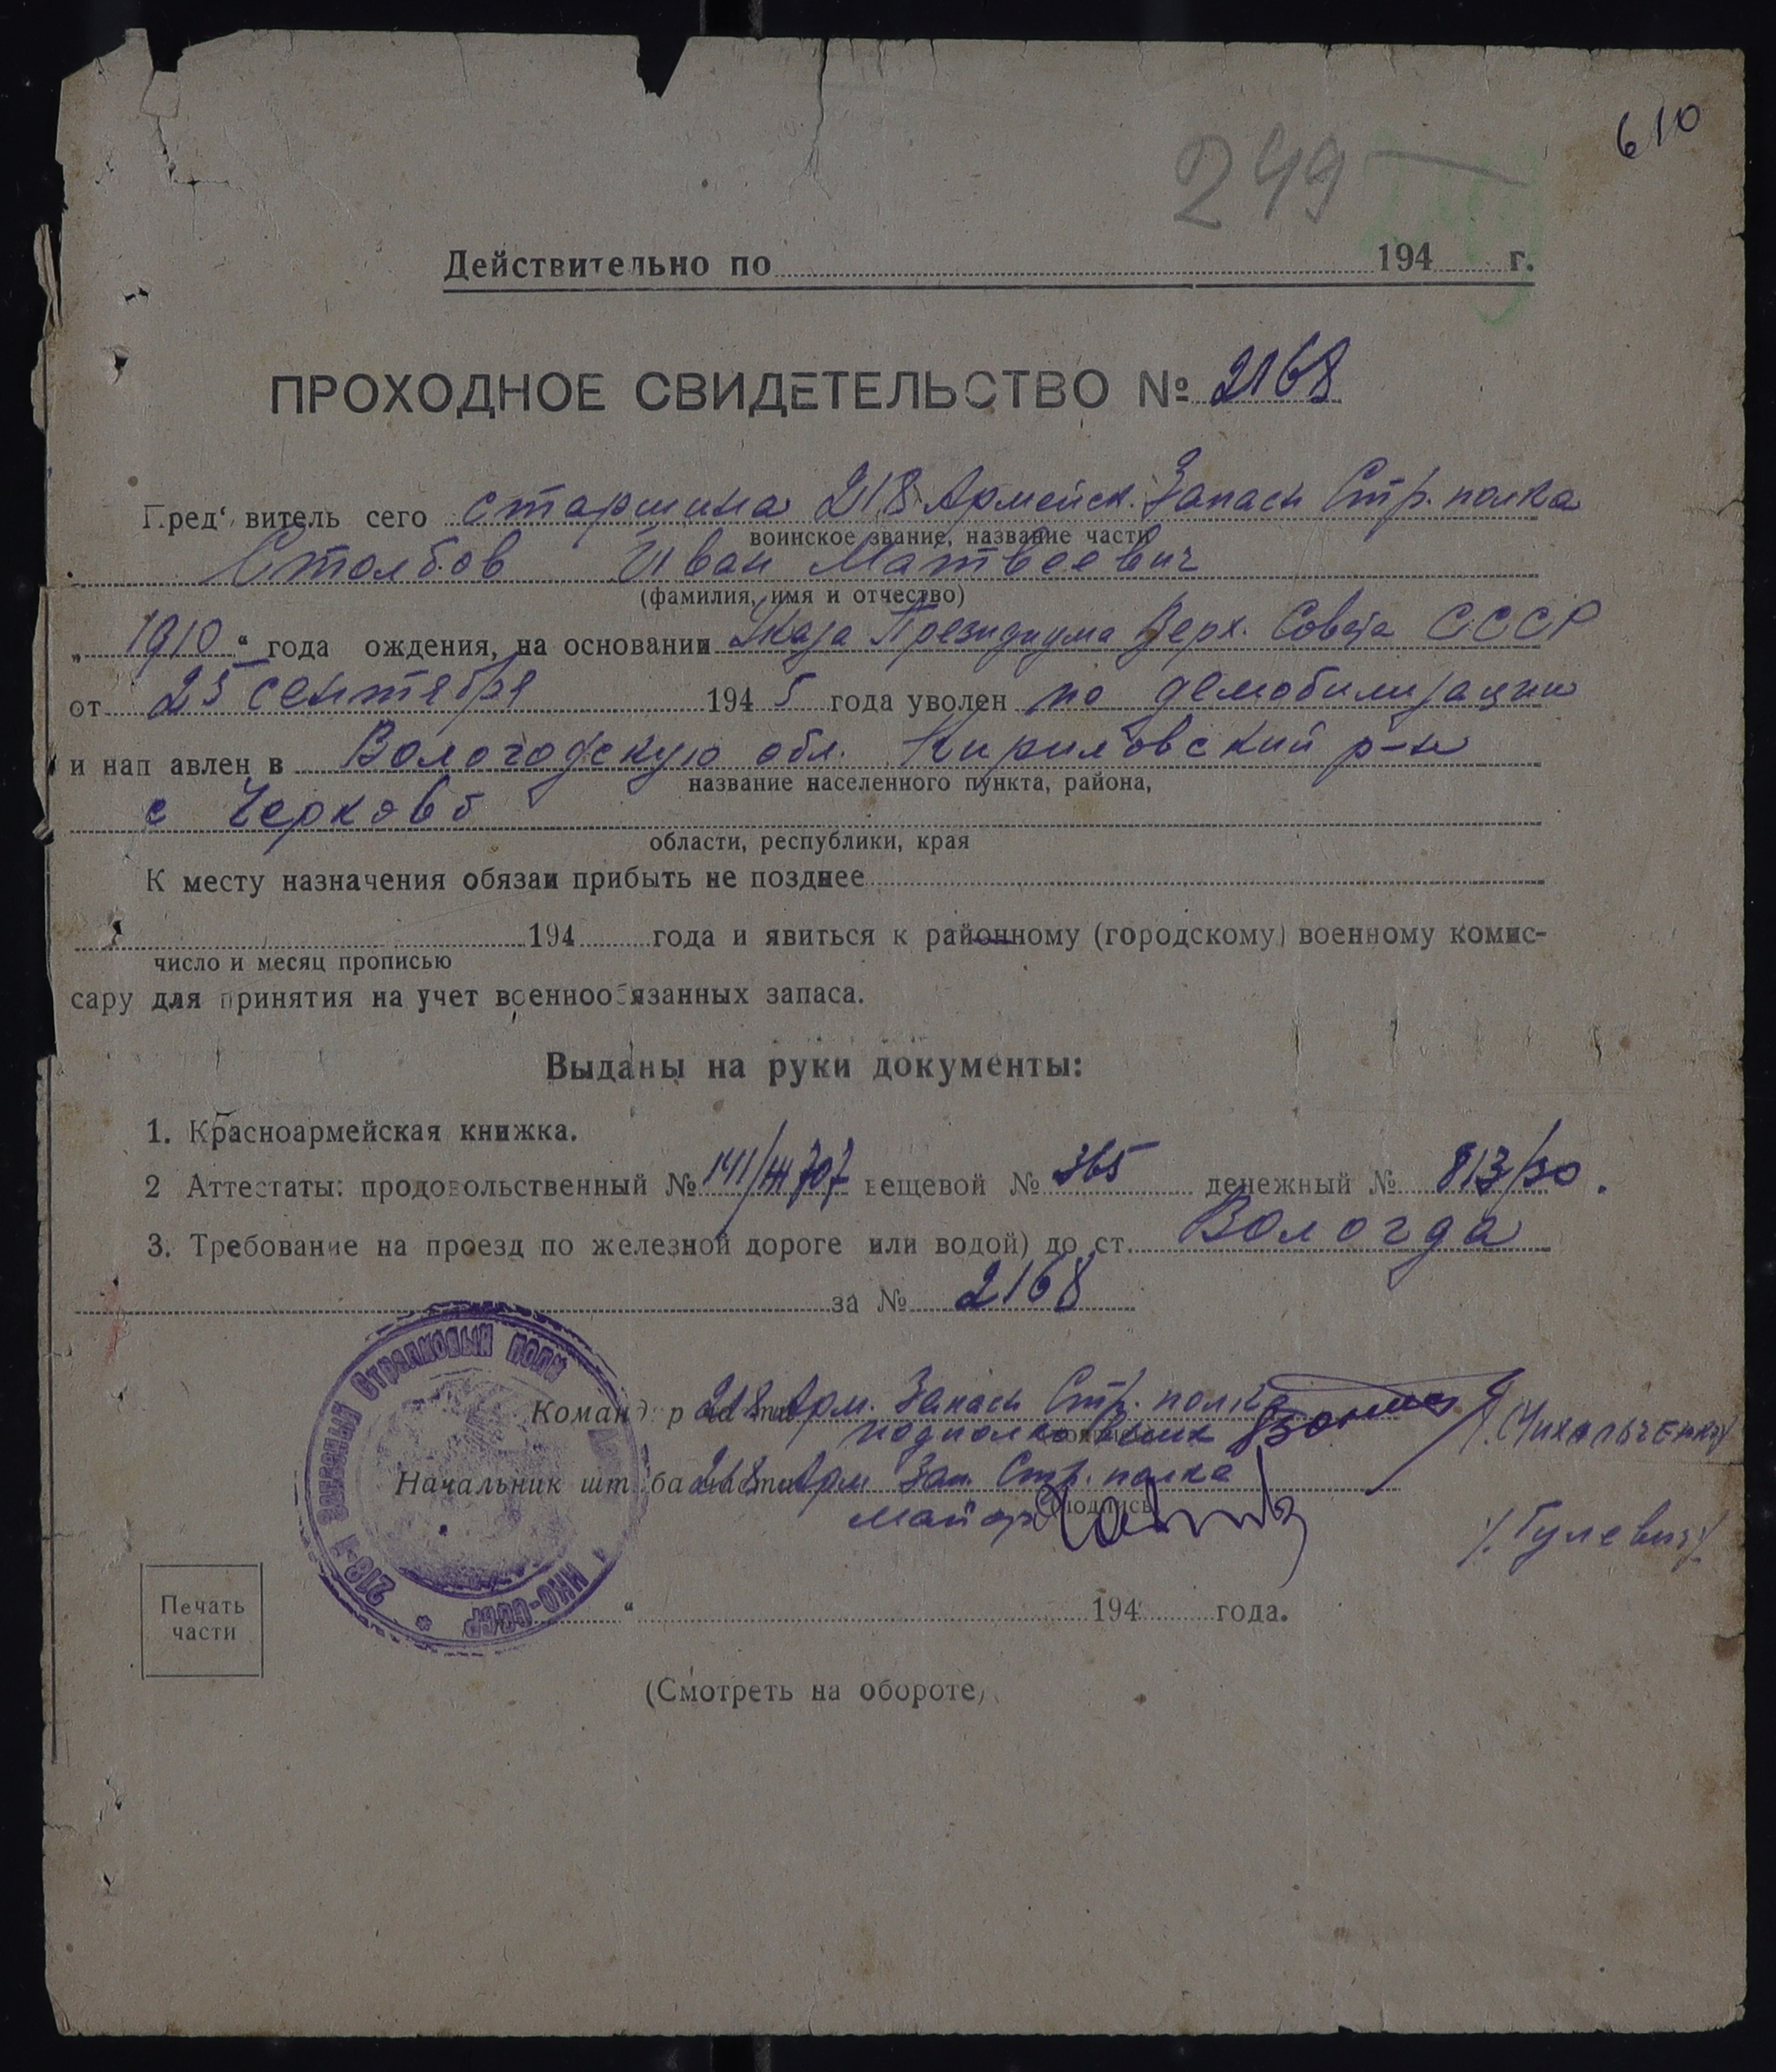 610
249
249
Действительно по 194 г.
ПРОХОДНОЕ СВИДЕТЕЛЬСТВО № 2168
Пред' витель сего старшина 218 Армейск. Запасн Стр. полка
воинское звание, название части
Столбов Иван Матвеевич
(фамилия, имя и отчество)
„1910“ года ождения, на основании Указа Президиума Верх. Совета СССР
от 25 сентября 1945 года уволен по демобилизации
и нап авлен в Вологодскую обл. Кириловский р-н
название населенного пункта, района,
с
области, республики, края
К месту назначения обязан прибыть не позднее
194 года и явиться к районному (городскому) военному комис-
число и месяц прописью
сару для принятия на учет военнообязанных запаса.
Выданы на руки документы:
1. Красноармейская книжка.
2 Аттестаты: продовольственный № вещевой № 365 денежный № 813/30.
3. Требование на проезд по железной дороге или водой) до ст. Вологда
за № 2168
Команд р части 218 Арм. Запасн Стр. полка
подполковник (Михальченко)
Начальник шт ба части 218 Арм Зап. Стр. полка
(подпись)
майор /Гулевич/
218-й Запасный Стрелковый полк
НКО-СССР *
Печать
части
“ 194 года.
(Смотреть на обороте)